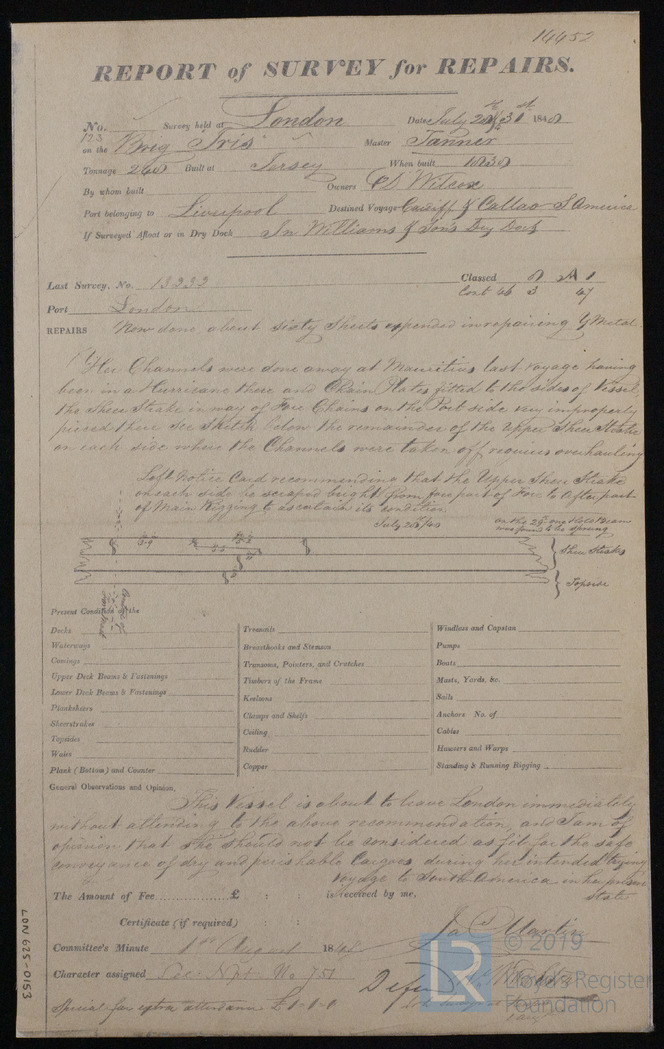 14452
REPORT of SURVEY for REPAIRS.
No. 123 Survey held at London Date July 28 & 31st 1848
on the Brig Iris Master Tanner
Tonnage 240 Built at Jersey When built 1838
By whom built Owners Wilcox
Port belonging to Liverpool Destined Voyage Cardiff & Callao S America
If Surveyed Afloat or in Dry Dock In Williams & Sons Dry Dock
Last Survey, No. 13232 Classed 8 A 1
Cont 46 3 47
Port London
REPAIRS Now done about sixty Sheets expended in repairing Y Metal.
Her Channels were done away at Mauritius last voyage having
been in a Hurricane there and Chain Plates fitted to the sides of Vessel,
the Sheer Strake in way of Fore Chains on the Port side very improperly
pieced there see Sketch below the remainder of the Upper Sheer Strake
on each side where the Channels were taken off requires overhauling
Left Notice Card recommending that the Upper Sheer Strake
on each side be scraped bright from fore part of Fore to After part
of Main Rigging to ascertain its condition
July 28th/48
On the 29th one Hold Beam
was found to be sprung
Sheer Strakes
Topside
Present Condition of the
Decks
Waterways
Comings
Upper Deck Beams & Fastenings
Lower Deck Beams & Fastenings
Plankshiers
Sheerstrakes
Topsides
Wales
Plank (Bottom) and Counter
Treenails
Breasthooks and Stemson
Transoms, Pointers, and Crutches
Timbers of the Frame
Keelsons
Clamps and Shelfs
Ceiling
Rudder
Copper
Windlass and Capstan
Pumps
Boats
Masts, Yards, &c.
Sails
Anchors No. of
Cables
Hawsers and Warps
Standing & Running Rigging
General Observations and Opinion,
This Vessel is about to leave London immediately
without attending to the above recommendation, and I am of
opinion that she should not be considered as fit for the safe
conveyance of dry and perishable Cargoes during her intended
Voyage to South America in her present
state
The Amount of Fee £ : : is received by me,
Certificate (if required)
Jas Martin
Committee's Minute 1st August 1848
Character assigned No 751
Special fee extra attendance £1-1-0
LON 625-0153
LR
© 2019
Lloyd's Register
Foundation